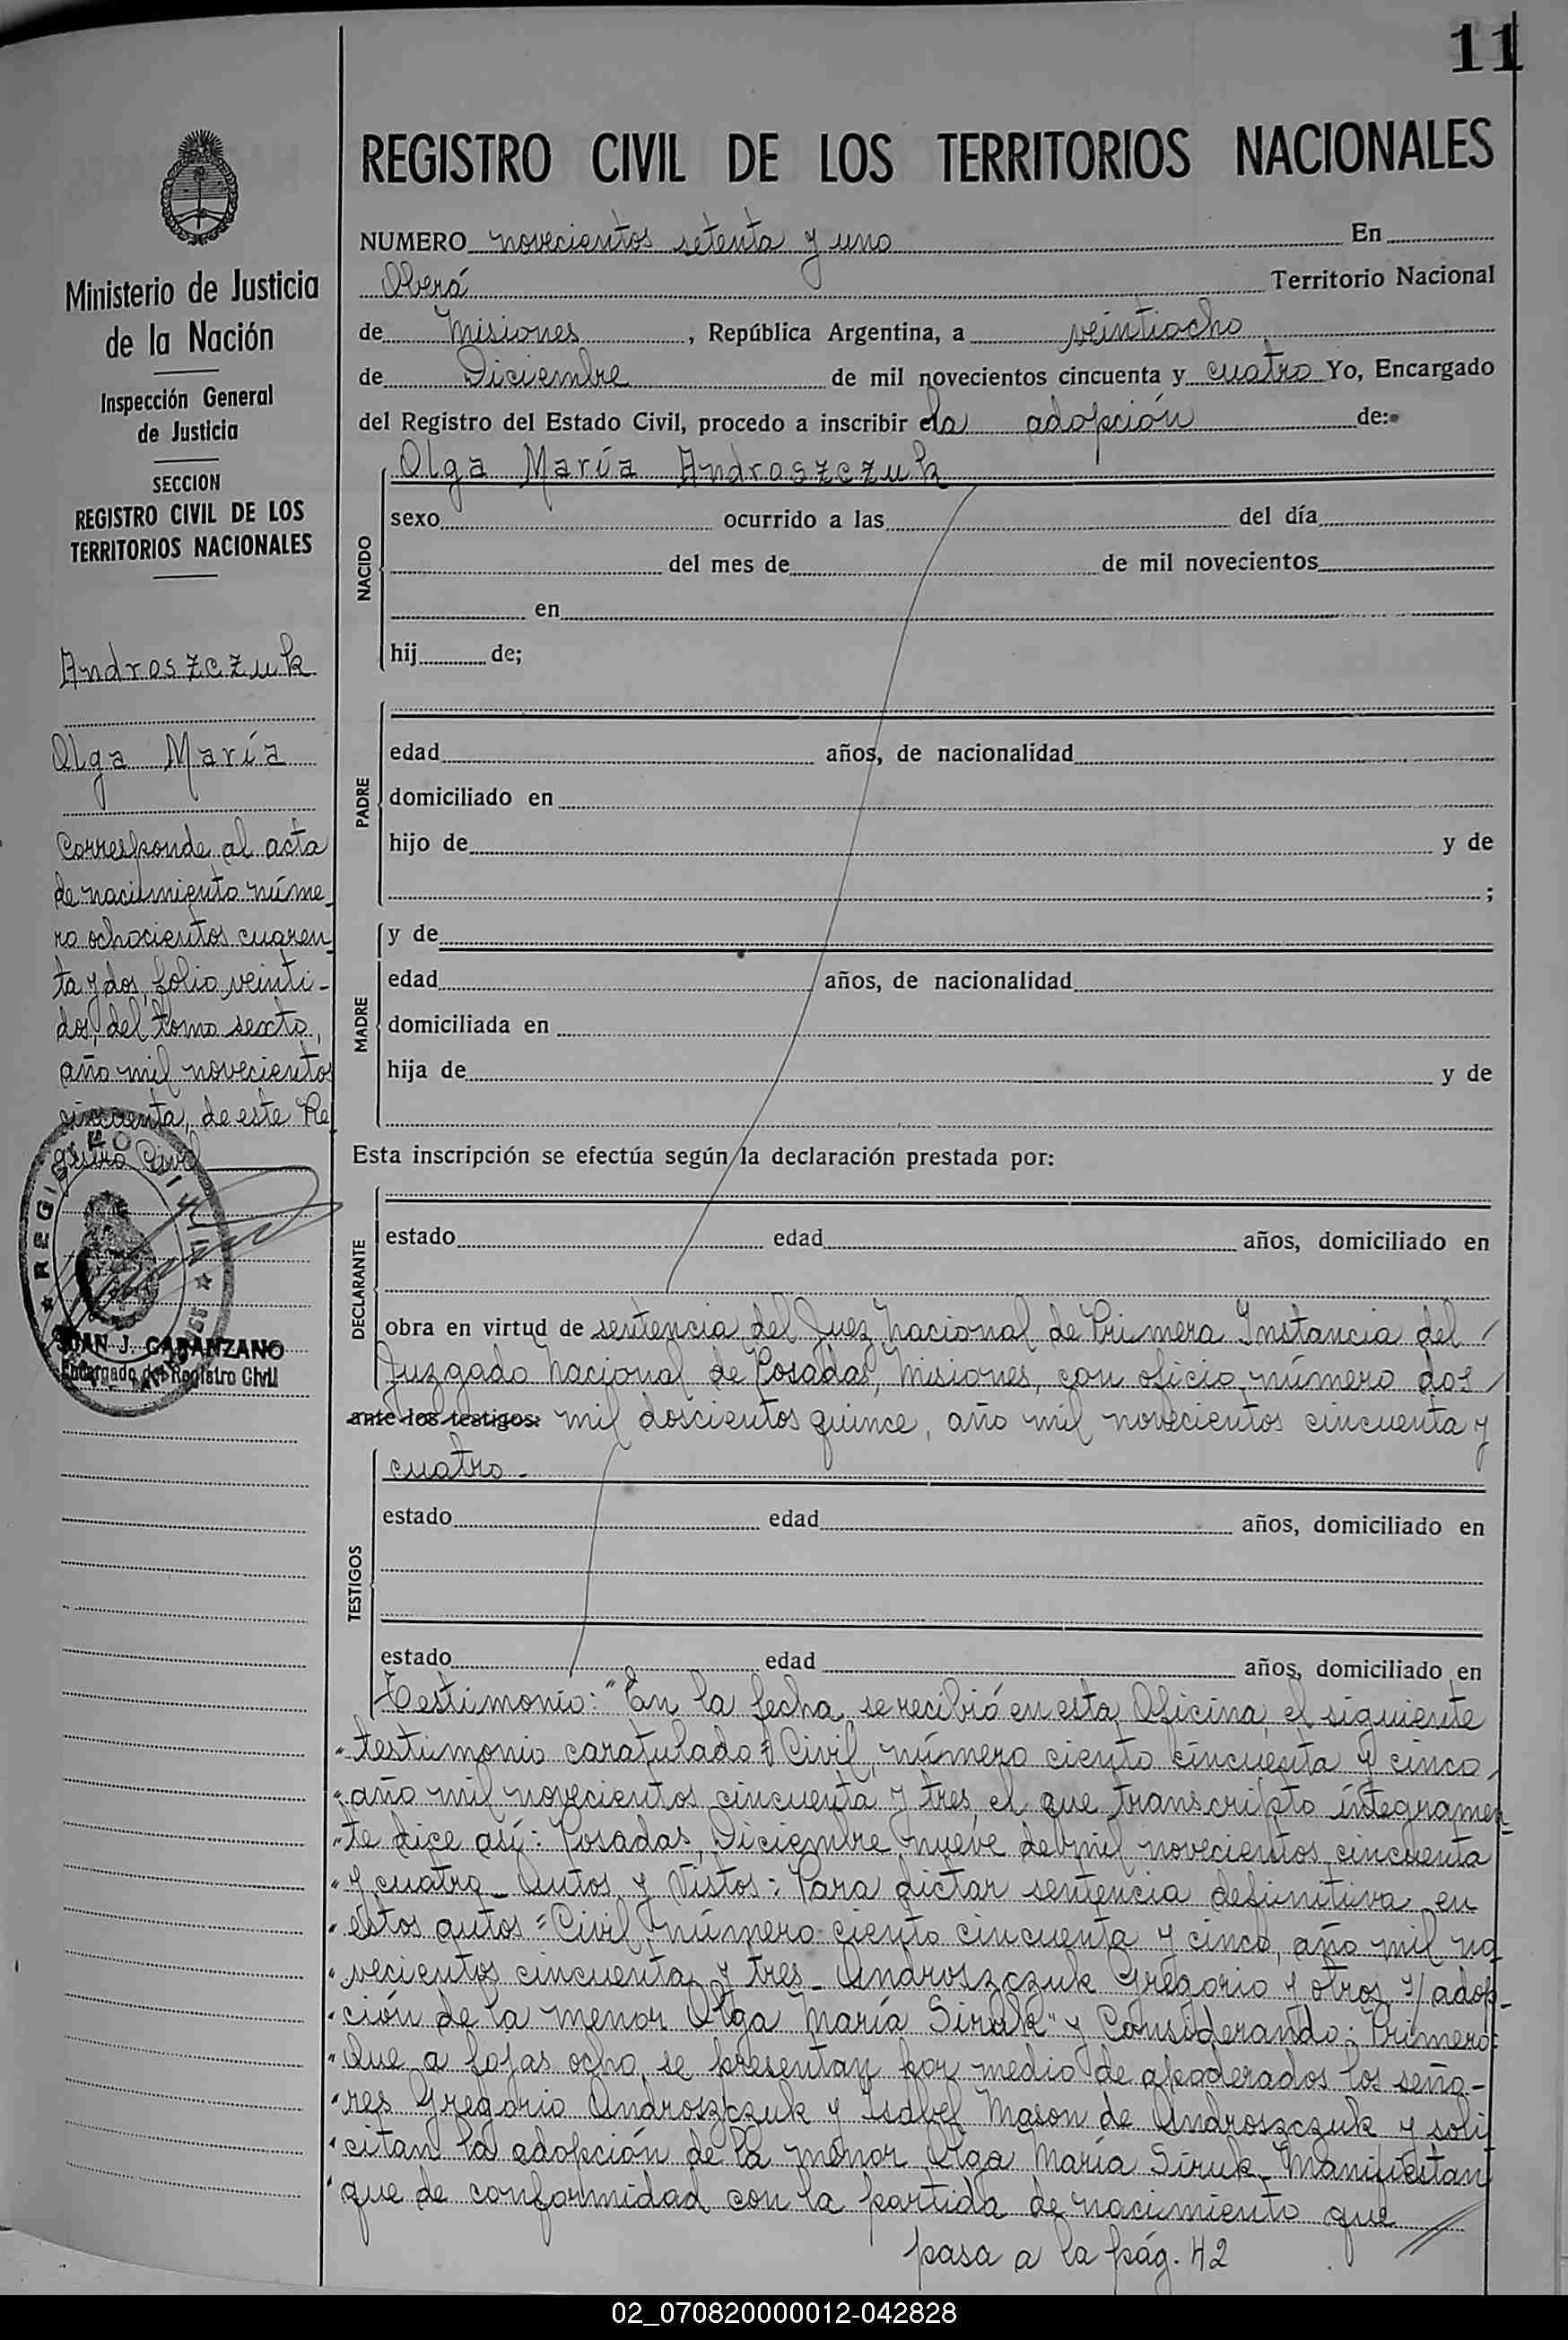 11
REGISTRO CIVIL DE LOS TERRITORIOS NACIONALES
NUMERO novecientos setenta y uno En
Oberá Territorio Nacional
de Misiones, República Argentina, a veintiocho
de Diciembre de mil novecientos cincuenta y cuatro Yo, Encargado
del Registro del Estado Civil, procedo a inscribir la adopción de:
Olga María Androszczuk
NACIDO
sexo ocurrido a las del día
del mes de de mil novecientos
en
hij de;
PADRE
edad años, de nacionalidad
domiciliado en
hijo de y de
;
MADRE
y de
edad años, de nacionalidad
domiciliada en
hija de y de
Esta inscripción se efectúa según la declaración prestada por:
DECLARANTE
estado edad años, domiciliado en
obra en virtud de sentencia del Juez Nacional de Primera Instancia del
Juzgado Nacional de Posadas, Misiones, con oficio número dos
ante los testigos: mil doscientos quince, año mil novecientos cincuenta y
cuatro.-
TESTIGOS
estado edad años, domiciliado en
estado edad años, domiciliado en
Testimonio: "En la fecha se recibió en esta Oficina, el siguiente
"testimonio caratulado: Civil, número ciento cincuenta y cinco,
"año mil novecientos cincuenta y tres, el que transcripto íntegramen-
"te dice así: Posadas, Diciembre nueve de mil novecientos cincuenta
"y cuatro_ Autos y Vistos: Para dictar sentencia definitiva en
"estos autos = Civil, número ciento cincuenta y cinco, año mil no
"vecientos cincuenta y tres_ Androszczuk Gregorio y otros s/ adop-
"ción de la menor Olga María Siruk" y Considerando: Primero:
"Que a fojas ocho se presentan por medio de apoderados los seño-
"res Gregorio Androszczuk y Isabel Mason de Androszczuk y soli
"citan la adopción de la menor Olga María Siruk_ Manifiestan
"que de conformidad con la partida de nacimiento que
pasa a la pág. 42
Ministerio de Justicia
de la Nación
Inspección General
de Justicia
SECCION
REGISTRO CIVIL DE LOS
TERRITORIOS NACIONALES
Androszczuk
Olga María
Corresponde al acta
de nacimiento núme_
ro ochocientos cuaren
ta y dos, folio veinti-
dos, del tomo sexto,
año mil novecientos
cincuenta, de este Re
gistro Civil
REGISTRO CIVIL
JUAN J. GABANZANO
Encargado del Registro Civil
02_070820000012-042828